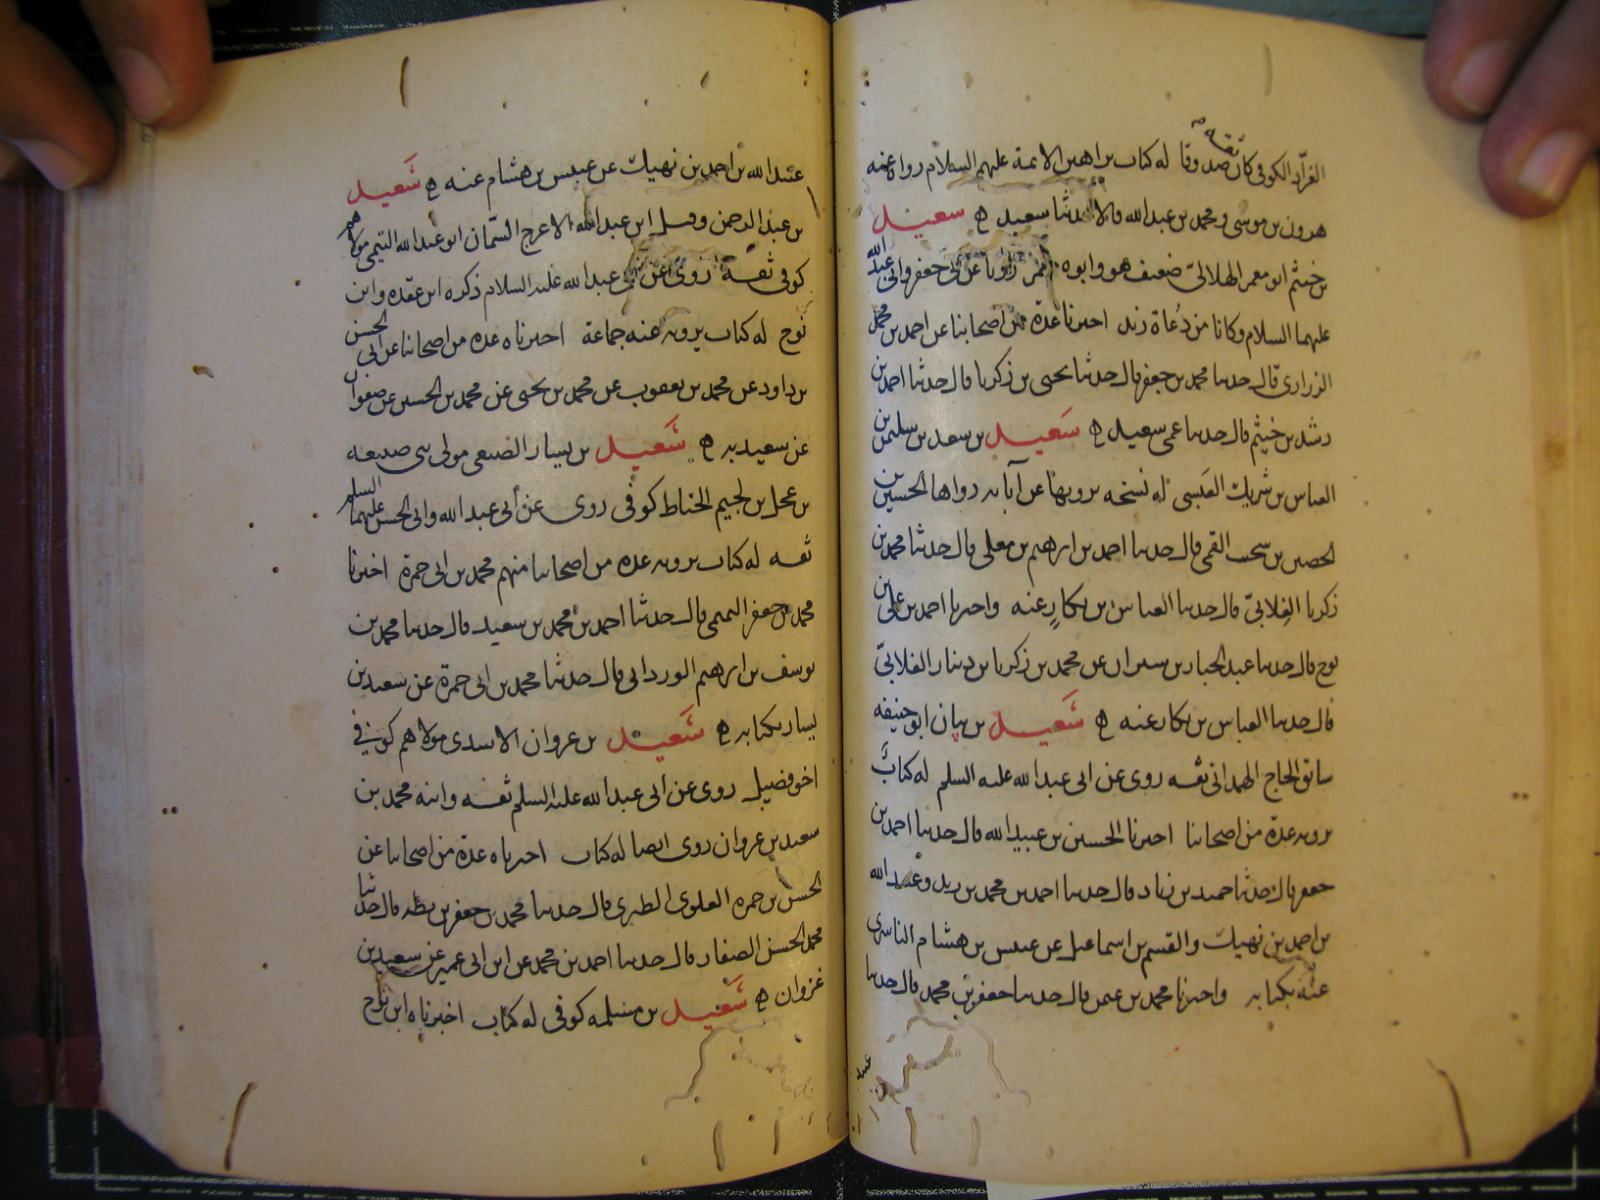 القزاز الكوفي كان ثقة صدوقا له كتاب براهين الائمة عليهم السلام رواه عنه
هرون بن موسى ومحمد بن عبدالله قالا حدثنا سعيد ه سعيد
بن خيثم ابو معمر الهلالي ضعيف هو وابوه رويا عن ابي جعفر وابي عبد الله
عليهما السلام وكانا من دعاة زيد اخبرنا عدة من اصحابنا عن احمد بن محمد
الزراري قال حدثنا محمد بن جعفر قال حدثنا يحيى بن زكريا قال حدثنا احمد بن
رشد بن خيثم قال حدثنا عمي سعيد ه سعيد بن سعد بن سليمن بن
العباس بن شريك العبسي له نسخه يرويها عن آبائه رواها الحسين بن
الحصين بن سخت القمي قال حدثنا احمد بن ابرهيم بن معلى قال حدثنا محمد بن
زكريا الغلابي قال حدثنا العباس بن بكار عنه واخبرنا احمد بن علي بن
نوح قال حدثنا عبد الجبار بن سيران عن محمد بن زكريا بن دينار الغلابي
قال حدثنا العباس بن بكار عنه ه سعيد بن بيان ابو حنيفه
سابق الحاج الهمداني ثقه روى عن ابي عبد الله عليه السلم له كتاب
يرويه عدة من اصحابنا اخبرنا الحسين بن عبيد الله قال حدثنا احمد بن
جعفر قال حدثنا حميد بن زياد قال حدثنا احمد بن محمد بن زيد وعبيد الله
بن احمد بن نهيك والقسم بن اسماعيل عن عبيس بن هشام الناشري
عنه بكتابه واخبرنا محمد بن عمر قال حدثنا جعفر بن محمد قال حدثنا
عبيد
عبيد الله بن احمد بن نهيك عن عبيس بن هشام عنه ه سعيد
بن عبد الرحمن وقيل ابن عبد الله الاعرج السمان ابو عبد الله التيمي مولاهم
كوفي ثقة روى عن ابي عبد الله عليه السلام ذكره ابن عقده وابن
نوح له كتاب يرويه عنه جماعة اخبرناه عدة من اصحابنا عن ابي الحسن
بن داود عن محمد بن يعقوب عن محمد بن يحيى عن محمد بن الحسين عن صفوان
عن سعيد به ه سعيد بن يسار الضبعي مولى بني ضبيعه
بن عجل بن لجيم الحناط كوفي روى عن أبي عبد الله وابي الحسن عليهما السلم
ثقه له كتاب يرويه عدة من اصحابنا منهم محمد بن ابي حمزة اخبرنا
محمد بن جعفر التميمي قال حدثنا احمد بن محمد بن سعيد قال حدثنا محمد بن
يوسف بن ابرهيم الورداني قال حدثنا محمد بن ابي حمزة عن سعيد بن
يسار بكتابه ه سعيد بن غزوان الاسدي مولاهم كوفي
اخو فضيل روى عن ابي عبد الله عليه السلم ثقه وابنه محمد بن
سعيد بن غزوان روى ايضا له كتاب اخبرناه عدة من اصحابنا عن
الحسن بن حمزه العلوي الطبري قال حدثنا محمد بن جعفر بن بطه قال حدثنا
محمد الحسن الصفار قال حدثنا احمد بن محمد عن ابن ابي عمير عن سعيد بن
غزوان ه سعيد بن مسلمه كوفي له كتاب اخبرناه ابن نوح